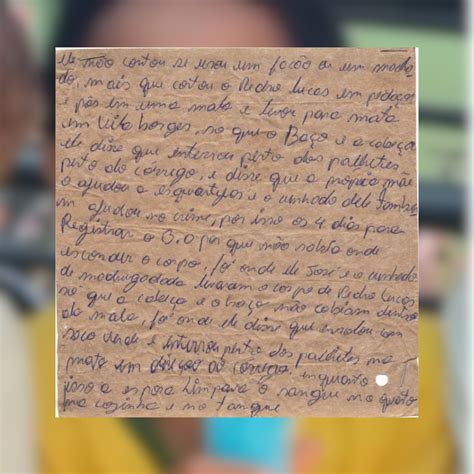 ele não contou se usou um facão ou um macha
do, mais que cortou o Pedro Lucas em pedaços
e pôs em uma mala e levou para mata
em Vila borges, no que o Braço e a cabeça
ele disse que enterrou perto dos palhetes-
perto do córrego, e disse que a própria mãe
o ajudou a esquartejar e o cunhado dele também
ajudou no crime, por isso os 4 dias para
Registrar o B.O por que não sabia onde
esconder o corpo, foi onde ele José e o cunhado
de madrugada levaram o corpo de Pedro Lucas
só que a cabeça e o braço não cabiam dentro
da mala, foi onde ele disse que enrolou com
saco verde e enterrou perto dos palhetes na
mata em do córrego, enquanto
isso a espora limpava o sangue no quarto
na cozinha e no tanque